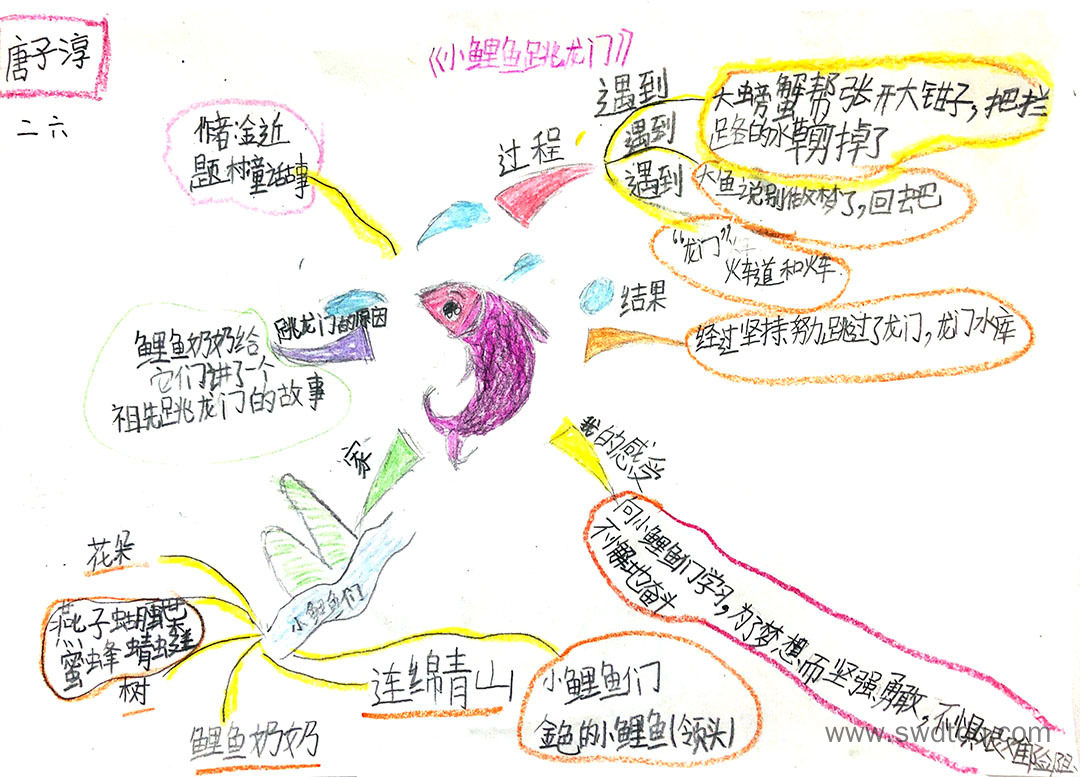 唐子淳
二六
《小鲤鱼跳龙门》
作者:金近
题材:童话故事
过程
遇到
大螃蟹帮张开大钳子,把拦
路的水草剪掉了
遇到
遇到
大鱼说别做梦了,回去吧
"龙门"
火车道和火车
结果
经过坚持努力跳过了龙门,龙门水库
跳龙门的原因
鲤鱼奶奶给
它们讲了一个
祖先跳龙门的故事
我的感受
向小鲤鱼们学习,为了梦想而坚强勇敢,不惧艰难险阻
不懈地奋斗
家
小鲤鱼们
花朵
燕子蝴蝶
蜜蜂蜻蜓
树
鲤鱼奶奶
连绵青山
小鲤鱼们
金色的小鲤鱼(领头)